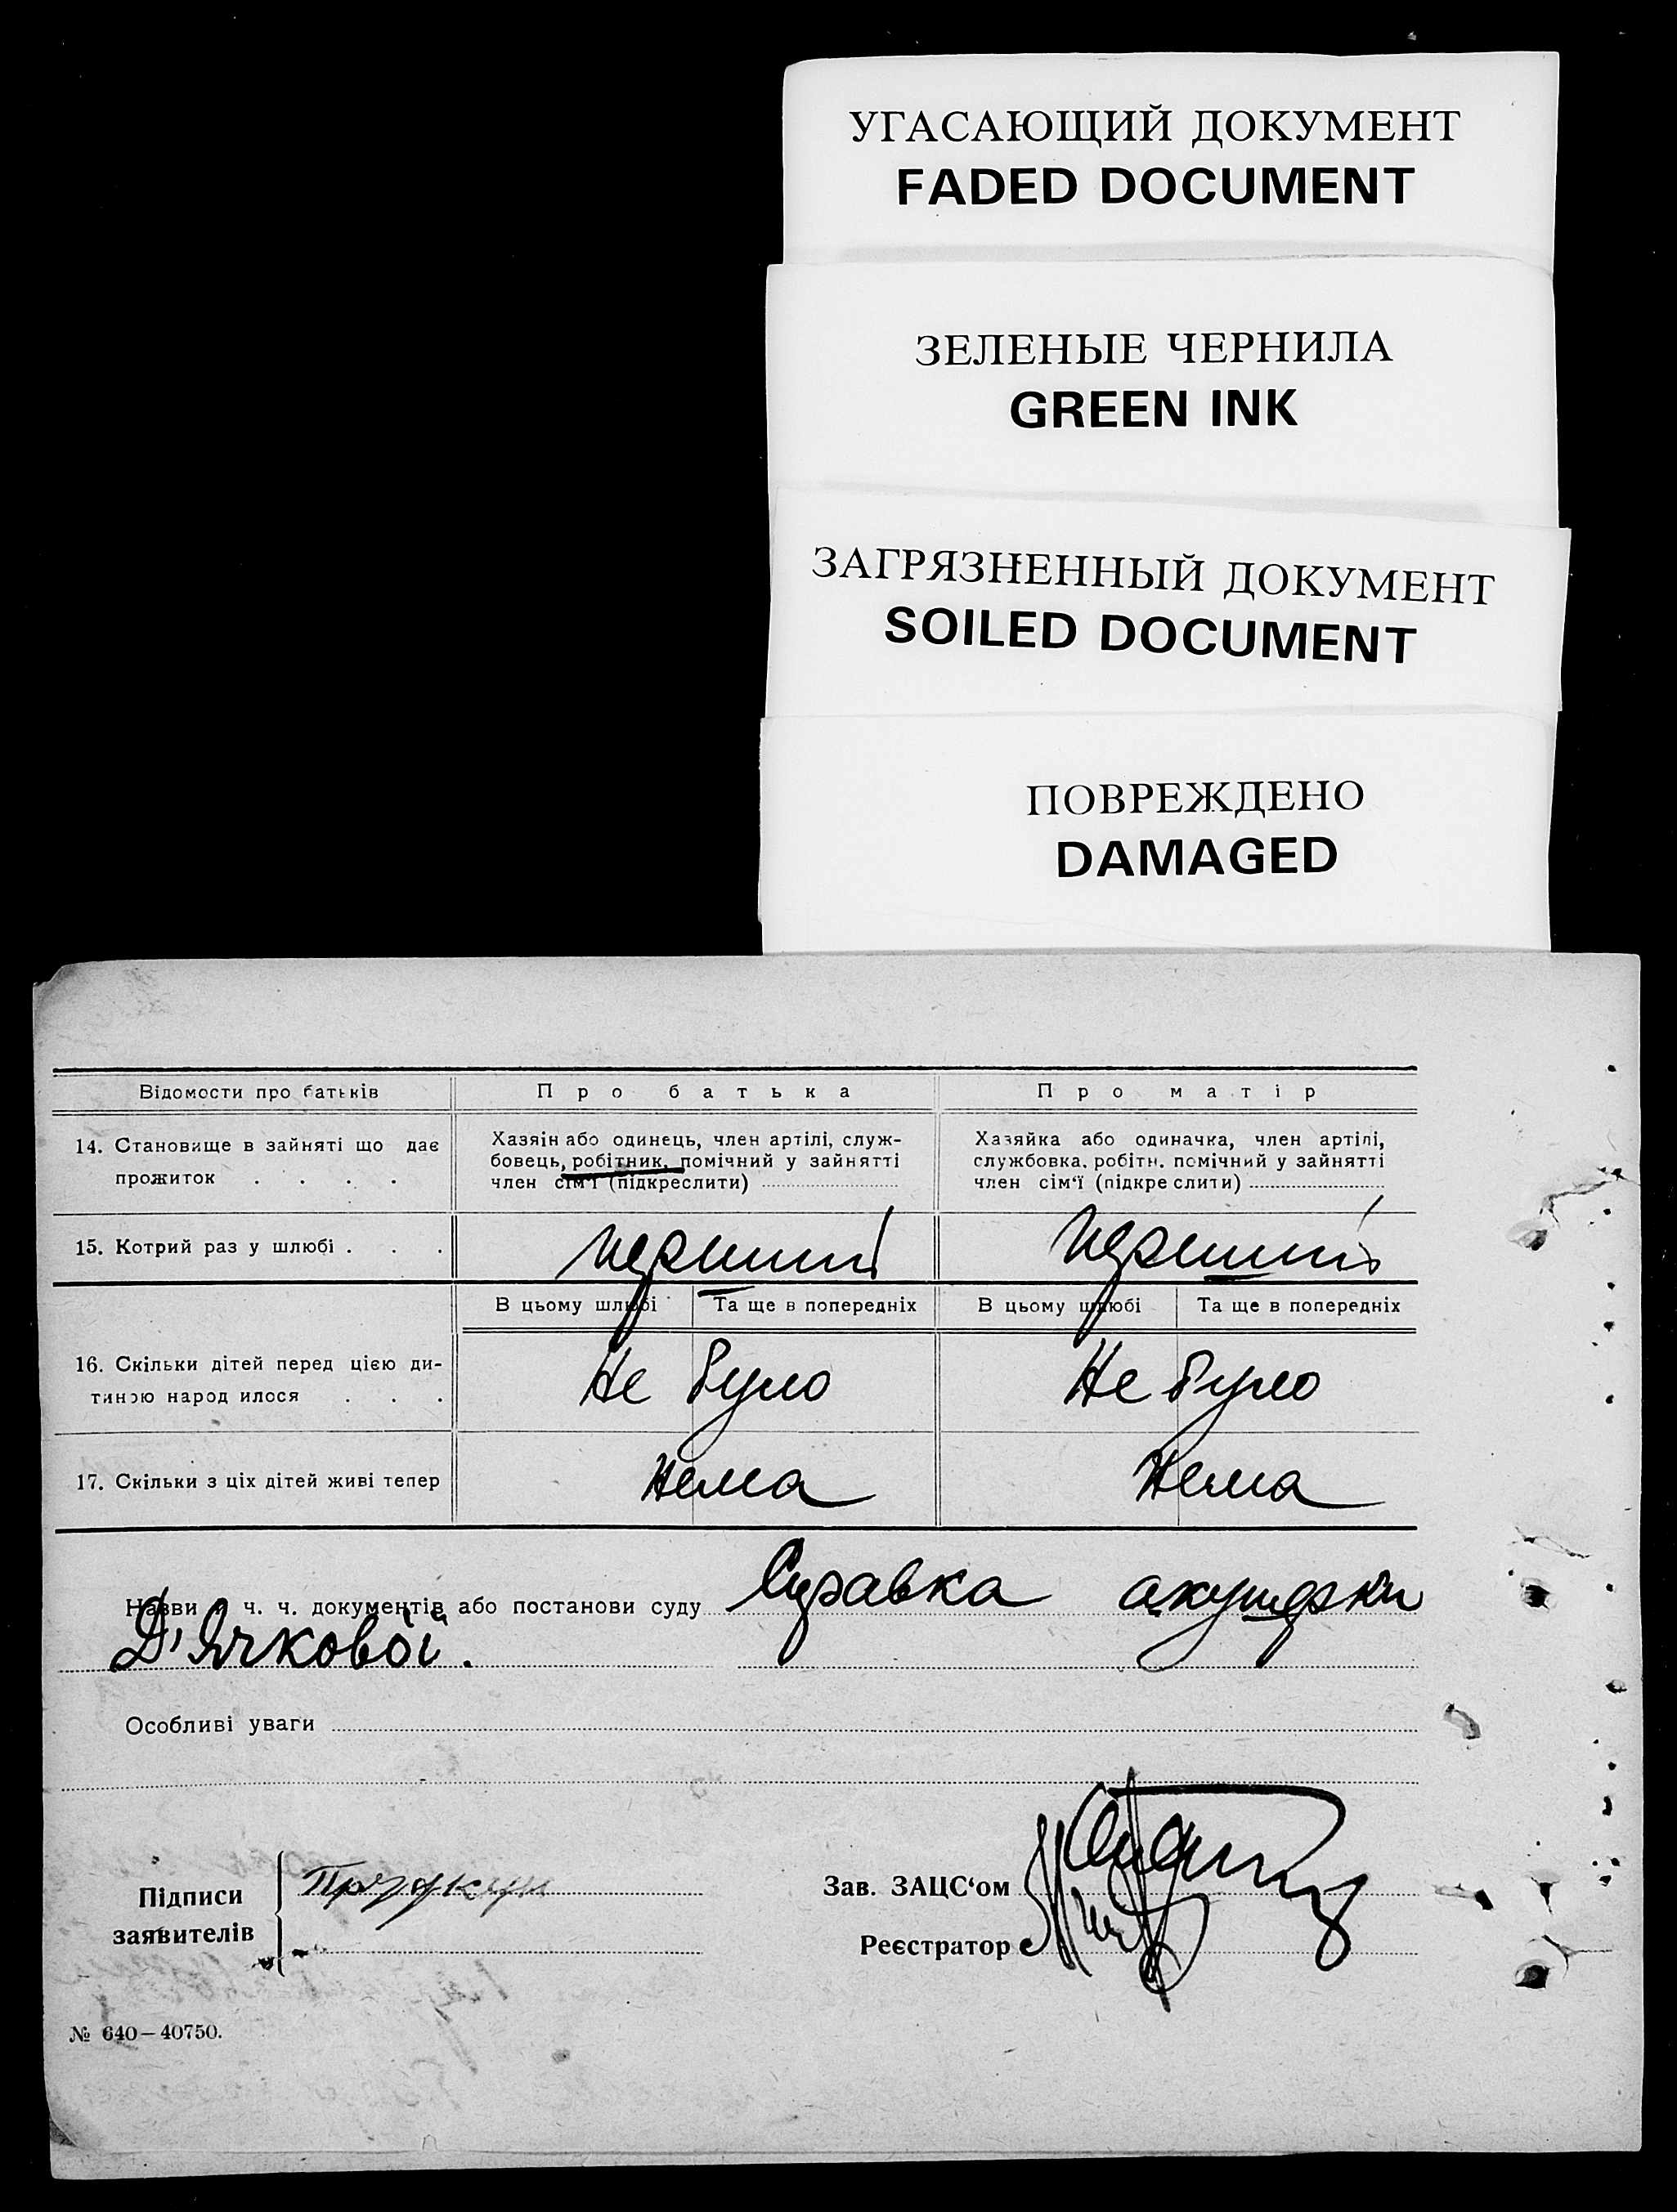 УГАСАЮЩИЙ ДОКУМЕНТ
FADED DOCUMENT
ЗЕЛЕНЫЕ ЧЕРНИЛА
GREEN INK
ЗАГРЯЗНЕННЫЙ ДОКУМЕНТ
SOILED DOCUMENT
ПОВРЕЖДЕНО
DAMAGED
Відомости про батьків
Про батька
Про матір
14. Становище в зайняті що дає
прожиток . . . .
Хазяін або одинець, член артілі, служ-
бовець, робітник, помічний у зайнятті
член сім'ї (підкреслити)
Хазяйка або одиначка, член артілі,
службовка, робітн. помічний у зайнятті
член сім'ї (підкреслити)
15. Котрий раз у шлюбі . . .
перший
перший
В цьому шлюбі
Та ще в попередніх
В цьому шлюбі
Та ще в попередніх
16. Скільки дітей перед цією ди-
тиною народилося . . .
Не було
Не було
17. Скільки з ціх дітей живі тепер
Нема
Нема
Назви й ч. ч. документів або постанови суду Справка акушерки
Д'ячкової.
Особливі уваги
Підписи
заявителів
Зав. ЗАЦС'ом
Реєстратор
№ 640—40750.